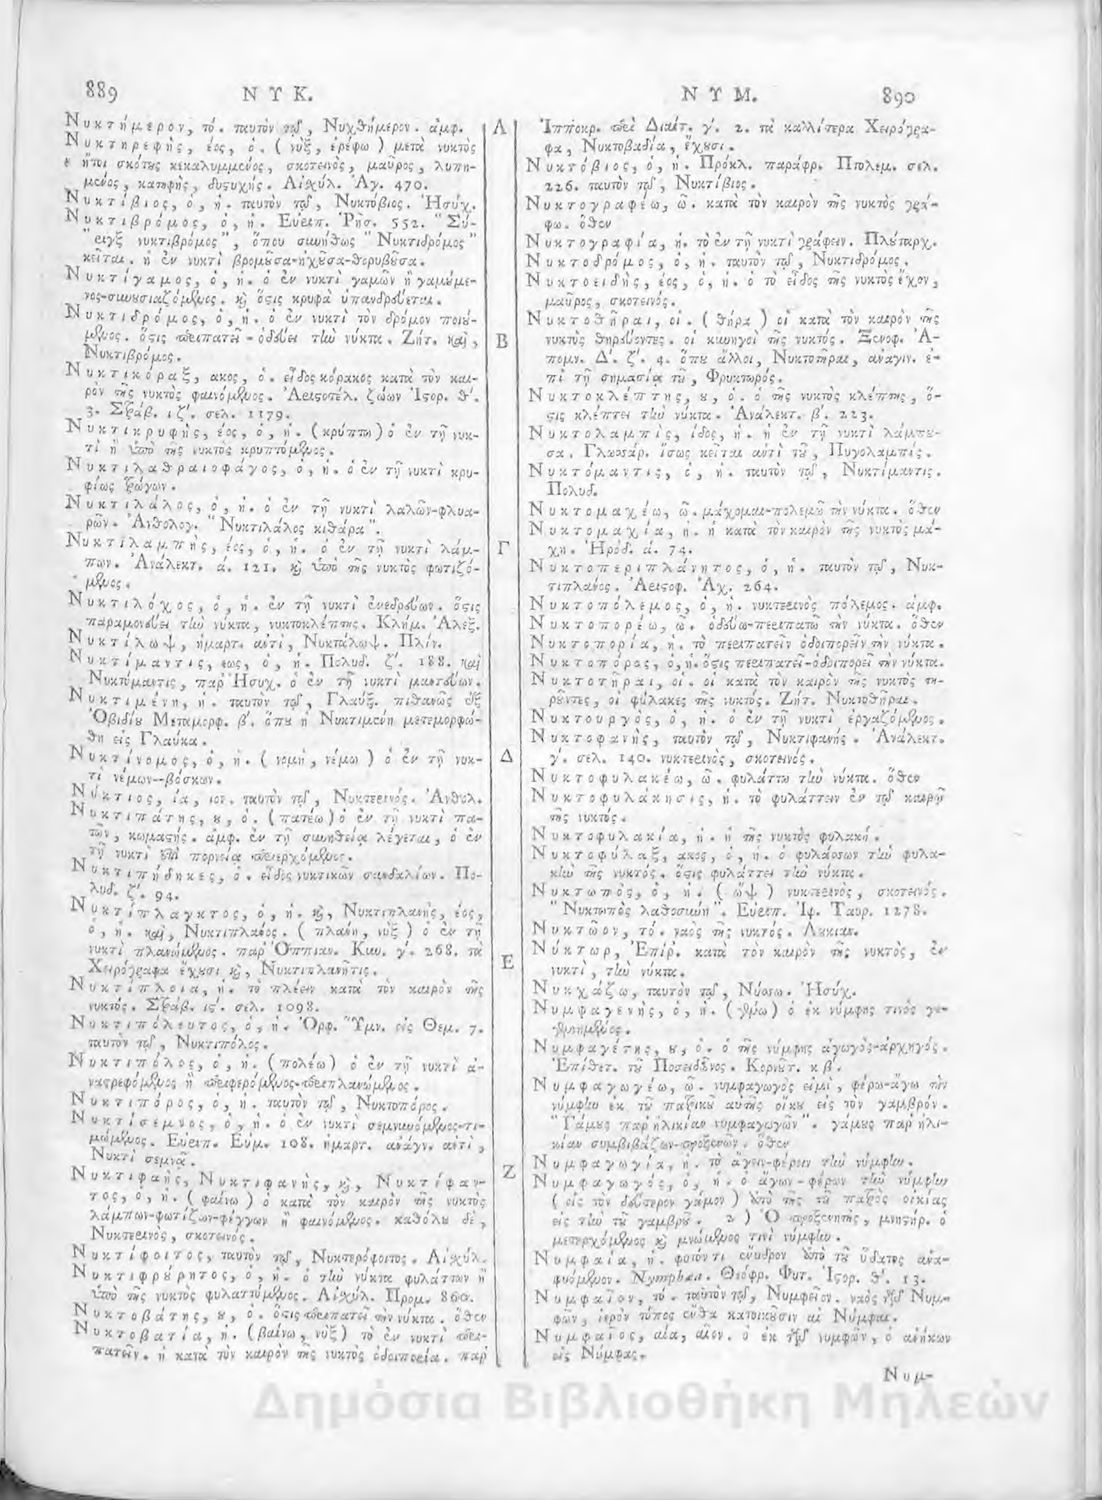 889 Ν Υ Κ.
Νυκτήμερον, τό. ταυτὸν τῷ, Νυχθήμερον. ἀμφ.
Νυκτηρεφὴς, έος, ὁ. ( νὺξ, ἐρέφω ) μετὰ νυκτὸς
ἤτοι σκότους κεκαλυμμένος, σκοτεινὸς, μαῦρος, λυπη-
μένος, κατηφὴς, δυςυχής. Αἰσχύλ. Ἀγ. 470.
Νυκτίβιος, ὁ, ἡ. ταυτὸν τῷ, Νυκτόβιος. Ἡσύχ.
Νυκτιβρόμος, ὁ, ἡ. Εὐριπ. Ῥῆσ. 552. "Σύ-
ριγξ νυκτιβρόμος", ὅπου συνήθως "Νυκτιδρόμος"
κεῖται. ἡ ἐν νυκτὶ βρομοῦσα-ἠχοῦσα-θορυβοῦσα.
Νυκτίγαμος, ὁ, ἡ. ὁ ἐν νυκτὶ γαμῶν ἢ γαμούμε-
νος-συνουσιαζόμενος. καὶ ὅςις κρυφὰ ὑπανδρεύεται.
Νυκτιδρόμος, ὁ, ἡ. ὁ ἐν νυκτὶ τὸν δρόμον ποιού-
μενος. ὅςις περιπατεῖ-ὁδεύει τὴν νύκτα. Ζήτ. καὶ,
Νυκτιβρόμος.
Νυκτικόραξ, ακος, ὁ. εἶδος κόρακος κατὰ τὸν και-
ρὸν τῆς νυκτὸς φαινόμενος. Ἀριςοτέλ. ζώων Ἱςορ. θ'.
3. Στράβ. ιζ'. σελ. 1179.
Νυκτικρυφὴς, έος, ὁ, ἡ. (κρύπτω) ὁ ἐν τῇ νυκ-
τὶ ἢ ὑπὸ τῆς νυκτὸς κρυπτόμενος.
Νυκτιλαθραιοφάγος, ὁ, ἡ. ὁ ἐν τῇ νυκτὶ κρυ-
φίως τρώγων.
Νυκτιλάλος, ὁ, ἡ. ὁ ἐν τῇ νυκτὶ λαλῶν-φλυα-
ρῶν. Ἀνθολογ. "Νυκτιλάλος κιθάρα".
Νυκτιλαμπὴς, έος, ὁ, ἡ. ὁ ἐν τῇ νυκτὶ λάμ-
πων. Ἀνάλεκτ. ά. 121. καὶ ὑπὸ τῆς νυκτὸς φωτιζό-
μενος.
Νυκτιλόχος, ὁ, ἡ. ἐν τῇ νυκτὶ ἐνεδρεύων. ὅςις
παραμονεύει τὴν νύκτα, νυκτοκλέπτης. Κλήμ. Ἀλεξ.
Νυκτίλωψ, ἡμαρτ. ἀντὶ, Νυκτάλωψ. Πλίν.
Νυκτίμαντις, εως, ὁ, ἡ. Πολυδ. ζ'. 188. καὶ
Νυκτόμαντις, παρ' Ἡσυχ. ὁ ἐν τῇ νυκτὶ μαντεύων.
Νυκτιμένη, ἡ. ταυτὸν τῷ, Γλαύξ. πιθανῶς ἐξ
Ὀβιδίου Μεταμορφ. β'. ὅπου ἡ Νυκτιμένη μετεμορφώ-
θη εἰς Γλαῦκα.
Νυκτίνομος, ὁ, ἡ. ( νομὴ, νέμω ) ὁ ἐν τῇ νυκ-
τὶ νέμων--βόσκων.
Νύκτιος, ία, ιον. ταυτὸν τῷ, Νυκτερινός. Ἀνθολ.
Νυκτιπάτης, ου, ὁ. (πατέω) ὁ ἐν τῇ νυκτὶ πα-
τῶν, κωμαςής. ἀμφ. ἐν τῇ συνηθείᾳ λέγεται, ὁ ἐν
τῇ νυκτὶ ἐπὶ πορνείᾳ περιερχόμενος.
Νυκτιπήδηκες, ὁ. εἶδος νυκτικῶν σανδαλίων. Πο-
λυδ. ζ'. 94.
Νυκτίπλαγκτος, ὁ, ἡ. καὶ, Νυκτιπλανὴς, έος,
ὁ, ἡ. καὶ, Νυκτιπλάνος. ( πλάνη, νὺξ ) ὁ ἐν τῇ
νυκτὶ πλανώμενος. παρ' Ὀππιαν. Κυν. γ'. 268. τὰ
Χειρόγραφα ἔχουσι καὶ, Νυκτιπλανῆτις.
Νυκτίπλοια, ἡ. τὸ πλέειν κατὰ τὸν καιρὸν τῆς
νυκτός. Στράβ. ις'. σελ. 1098.
Νυκτιπόλευτος, ὁ, ἡ. Ὀρφ. Ὕμν. εἰς Θεμ. 7.
ταυτὸν τῷ, Νυκτιπόλος.
Νυκτιπόλος, ὁ, ἡ. (πολέω) ὁ ἐν τῇ νυκτὶ ἀ-
ναςρεφόμενος ἢ περιφερόμενος-περιπλανώμενος.
Νυκτιπόρος, ὁ, ἡ. ταυτὸν τῷ, Νυκτοπόρος.
Νυκτίσεμνος, ὁ, ἡ. ὁ ἐν νυκτὶ σεμνυνόμενος-τι-
μώμενος. Εὐριπ. Εὐμ. 108. ἡμαρτ. ἀνάγν. ἀντὶ,
Νυκτὶ σεμνά.
Νυκτιφαὴς, Νυκτιφανὴς, καὶ, Νυκτίφαν-
τος, ὁ, ἡ. ( φαίνω ) ὁ κατὰ τὸν καιρὸν τῆς νυκτὸς
λάμπων-φωτίζων-φέγγων ἢ φαινόμενος. καθόλου δὲ,
Νυκτερινὸς, σκοτεινός.
Νυκτίφοιτος, ταυτὸν τῷ, Νυκτερόφοιτος. Αἰσχύλ.
Νυκτιφρούρητος, ὁ, ἡ. ὁ τὴν νύκτα φυλάττων ἢ
ὑπὸ τῆς νυκτὸς φυλαττόμενος. Αἰσχύλ. Προμ. 860.
Νυκτοβάτης, ου, ὁ. ὅςις περιπατεῖ τὴν νύκτα. ὅθεν
Νυκτοβατία, ἡ. (βαίνω, νὺξ) τὸ ἐν νυκτὶ περι-
πατεῖν. ἡ κατὰ τὸν καιρὸν τῆς νυκτὸς ὁδοιπορεία. παρ'
Α
Β
Γ
Δ
Ε
Ζ
Ν Υ Μ. 890
Ἱπποκρ. περὶ Διαίτ. γ'. 2. τὰ καλλίτερα Χειρόγρα-
φα, Νυκτοβαδία, ἔχουσι.
Νυκτόβιος, ὁ, ἡ. Πρόκλ. παράφρ. Πτολεμ. σελ.
226. ταυτὸν τῷ, Νυκτίβιος.
Νυκτογραφέω, ῶ. κατὰ τὸν καιρὸν τῆς νυκτὸς γρά-
φω. ὅθεν
Νυκτογραφία, ἡ. τὸ ἐν τῇ νυκτὶ γράφειν. Πλούταρχ.
Νυκτοδρόμος, ὁ, ἡ. ταυτὸν τῷ, Νυκτιδρόμος.
Νυκτοειδὴς, έος, ὁ, ἡ. ὁ τὸ εἶδος τῆς νυκτὸς ἔχον,
μαῦρος, σκοτεινός.
Νυκτοθῆραι, οἱ. ( θήρα ) οἱ κατὰ τὸν καιρὸν τῆς
νυκτὸς θηρεύοντες. οἱ κυνηγοὶ τῆς νυκτός. Ξενοφ. Ἀ-
πομν. Δ'. ζ'. 4. ὅπου ἄλλοι, Νυκτοτῆραι, ἀνάγιν. ἐ-
πὶ τῇ σημασίᾳ τοῦ, Φρυκτωρός.
Νυκτοκλέπτης, ου, ὁ. ὁ τῆς νυκτὸς κλέπτης, ὅ-
ςις κλέπτει τὴν νύκτα. Ἀνάλεκτ. β'. 223.
Νυκτολαμπὶς, ίδος, ἡ. ἡ ἐν τῇ νυκτὶ λάμπου-
σα. Γλωσσάρ. ἴσως κεῖται ἀντὶ τοῦ, Πυγολαμπίς.
Νυκτόμαντις, ὁ, ἡ. ταυτὸν τῷ, Νυκτίμαντις.
Πολυδ.
Νυκτομαχέω, ῶ. μάχομαι-πολεμῶ τὴν νύκτα. ὅθεν
Νυκτομαχία, ἡ. ἡ κατὰ τὸν καιρὸν τῆς νυκτὸς μά-
χη. Ἡρόδ. ά. 74.
Νυκτοπεριπλάνητος, ὁ, ἡ. ταυτὸν τῷ, Νυκ-
τιπλάνος. Ἀριςοφ. Ἀχ. 264.
Νυκτοπόλεμος, ὁ, ἡ. νυκτερινὸς πόλεμος. ἀμφ.
Νυκτοπορέω, ῶ. ὁδεύω-περιπατῶ τὴν νύκτα. ὅθεν
Νυκτοπορία, ἡ. τὸ περιπατεῖν ὁδοιπορεῖν τὴν νύκτα.
Νυκτοπόρος, ὁ, ἡ. ὅςις περιπατεῖ-ὁδοιπορεῖ τὴν νύκτα.
Νυκτοτῆραι, οἱ. οἱ κατὰ τὸν καιρὸν τῆς νυκτὸς τη-
ροῦντες, οἱ φύλακες τῆς νυκτός. Ζήτ. Νυκτοθῆραι.
Νυκτουργὸς, ὁ, ἡ. ὁ ἐν τῇ νυκτὶ ἐργαζόμενος.
Νυκτοφανὴς, ταυτὸν τῷ, Νυκτιφανής. Ἀνάλεκτ.
γ'. σελ. 140. νυκτερινὸς, σκοτεινός.
Νυκτοφυλακέω, ῶ. φυλάττω τὴν νύκτα. ὅθεν
Νυκτοφυλάκησις, ἡ. τὸ φυλάττειν ἐν τῷ καιρῷ
τῆς νυκτός.
Νυκτοφυλακία, ἡ. ἡ τῆς νυκτὸς φυλακή.
Νυκτοφύλαξ, ακος, ὁ, ἡ. ὁ φυλάσσων τὴν φυλα-
κὴν τῆς νυκτός. ὅςις φυλάττει τὴν νύκτα.
Νυκτωπὸς, ὁ, ἡ. ( ὤψ ) νυκτερινὸς, σκοτεινός.
"Νυκτωπὸς λαθοσύνη". Εὐριπ. Ἰφ. Ταυρ. 1278.
Νυκτῶον, τό. ναὸς τῆς νυκτός. Λουκιαν.
Νύκτωρ, Ἐπίρ. κατὰ τὸν καιρὸν τῆς νυκτὸς, ἐν
νυκτὶ, τὴν νύκτα.
Νυκχάζω, ταυτὸν τῷ, Νύσσω. Ἡσύχ.
Νυμφαγενὴς, ὁ, ἡ. ( γένω) ὁ ἐκ νύμφης τινὸς γε-
γεννημένος.
Νυμφαγέτης, ου, ὁ. ὁ τῆς νύμφης ἀγωγὸς-ἀρχηγός.
Ἐπίθετ. τοῦ Ποσειδῶνος. Κορνοῦτ. κβ'.
Νυμφαγωγέω, ῶ. νυμφαγωγὸς εἰμὶ, φέρω-ἄγω τὴν
νύμφην ἐκ τοῦ πατρικοῦ αὐτῆς οἴκου εἰς τὸν γαμβρόν.
"Γάμους παρ' ἡλικίαν νυμφαγωγῶν". γάμους παρ' ἡλι-
κίαν συμβιβάζων-προξενῶν. ὅθεν
Νυμφαγωγία, ἡ. τὸ ἄγειν-φέρειν τὴν νύμφην.
Νυμφαγωγὸς, ὁ, ἡ. ὁ ἄγων-φέρων τὴν νύμφην
( εἰς τὸν δεύτερον γάμον ) ἀπὸ τῆς τοῦ πατρὸς οἰκίας
εἰς τὴν τοῦ γαμβροῦ. 2 ) Ὁ προξενητὴς, μνηςήρ. ὁ
μετερχόμενος καὶ μνώμενος τινὶ νύμφην.
Νυμφαία, ἡ. φυτόν τι ἔνυδρον ὑπὸ τοῦ ὕδατος ἀνα-
φυόμενον. Nymphæa. Θεόφρ. Φυτ. Ἱςορ. θ'. 13.
Νυμφαῖον, τό. ταυτὸν τῷ, Νυμφεῖον. ναὸς τῶν Νυμ-
φῶν, ἱερὸν τόπος ἔνθα κατοικοῦσιν αἱ Νύμφαι.
Νυμφαῖος, αία, αῖον. ὁ ἐκ τῶν νυμφῶν, ὁ ἀνήκων
εἰς Νύμφας.
Νυμ-
Δημόσια Βιβλιοθήκη Μηλεών